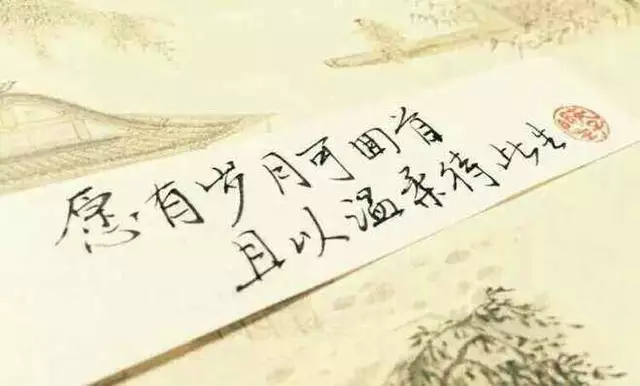 愿有岁月可回首
且以温柔待此生